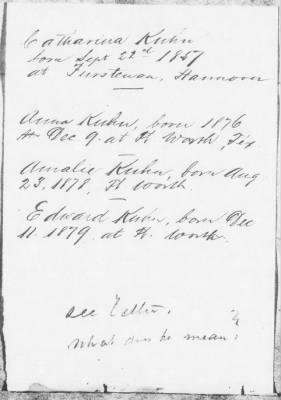 Catharina Kuhn
born Sept 22nd 1857
at Furstenau, Hannover
Anna Kuhn, born 1876
Dec 9. at Ft Worth, Tex
Amalie Kuhn, born Aug
23, 1878, Ft Worth.
Edward Kuhn, born Dec
11. 1879. at Ft. Worth.
see
What does he mean?